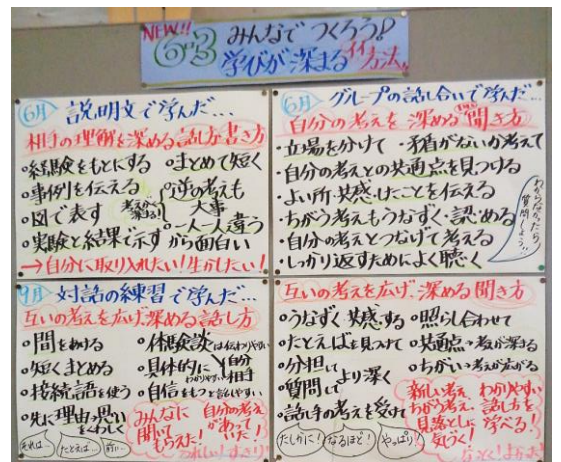 NEW!! 6-3 みんなで つくろう!
学びが深まるイイ方法
6月 説明文で学んだ…
相手の理解を深める話し方・書き方
・経験をもとにする ・まとめて短く
・事例を伝える ・逆の考えも
・図で表す 考えが深まる 大事
・実験と結果で示す ・一人一人違う
から面白い
→自分に取り入れたい!生かしたい!
6月 グループの話し合いで学んだ…
自分の考えを深める聞き方
・立場を分けて ・矛盾がないか考えて
・自分の考えとの共通点を見つける
・よい所・共感したことを伝える
・ちがう考えもうなずく・認める
・自分の考えとつなげて考える
・しっかり返すためによく聴く
わからなかったら質問しよう!!
9月 対話の練習で学んだ…
互いの考えを広げ、深める話し方
・間をあける ・体験談は伝わりやすい
・短くまとめる ・具体的に 自分 相手
わかりやすい
・接続語を使う ・自信をもつと話しやすい
・先に理由や思い
をくわしく
みんなに
聞いて
もらえた!
自分の考え
があって
いた!
うれしい!すっきり!
それは… たとえば… 前に…
互いの考えを広げ、深める聞き方
・うなずく 共感する ・照らし合わせて
・たとえばを見つけて ・共通点→考えが深まる
・分担して ・ちがい→考えが広がる
・質問して より深く
・話し手の考えを受けて
たしかに! なるほど! やっぱり?
新しい考え、わかりやすい
ちがう考え、話し方を
見落としに 学べる!
気づく!